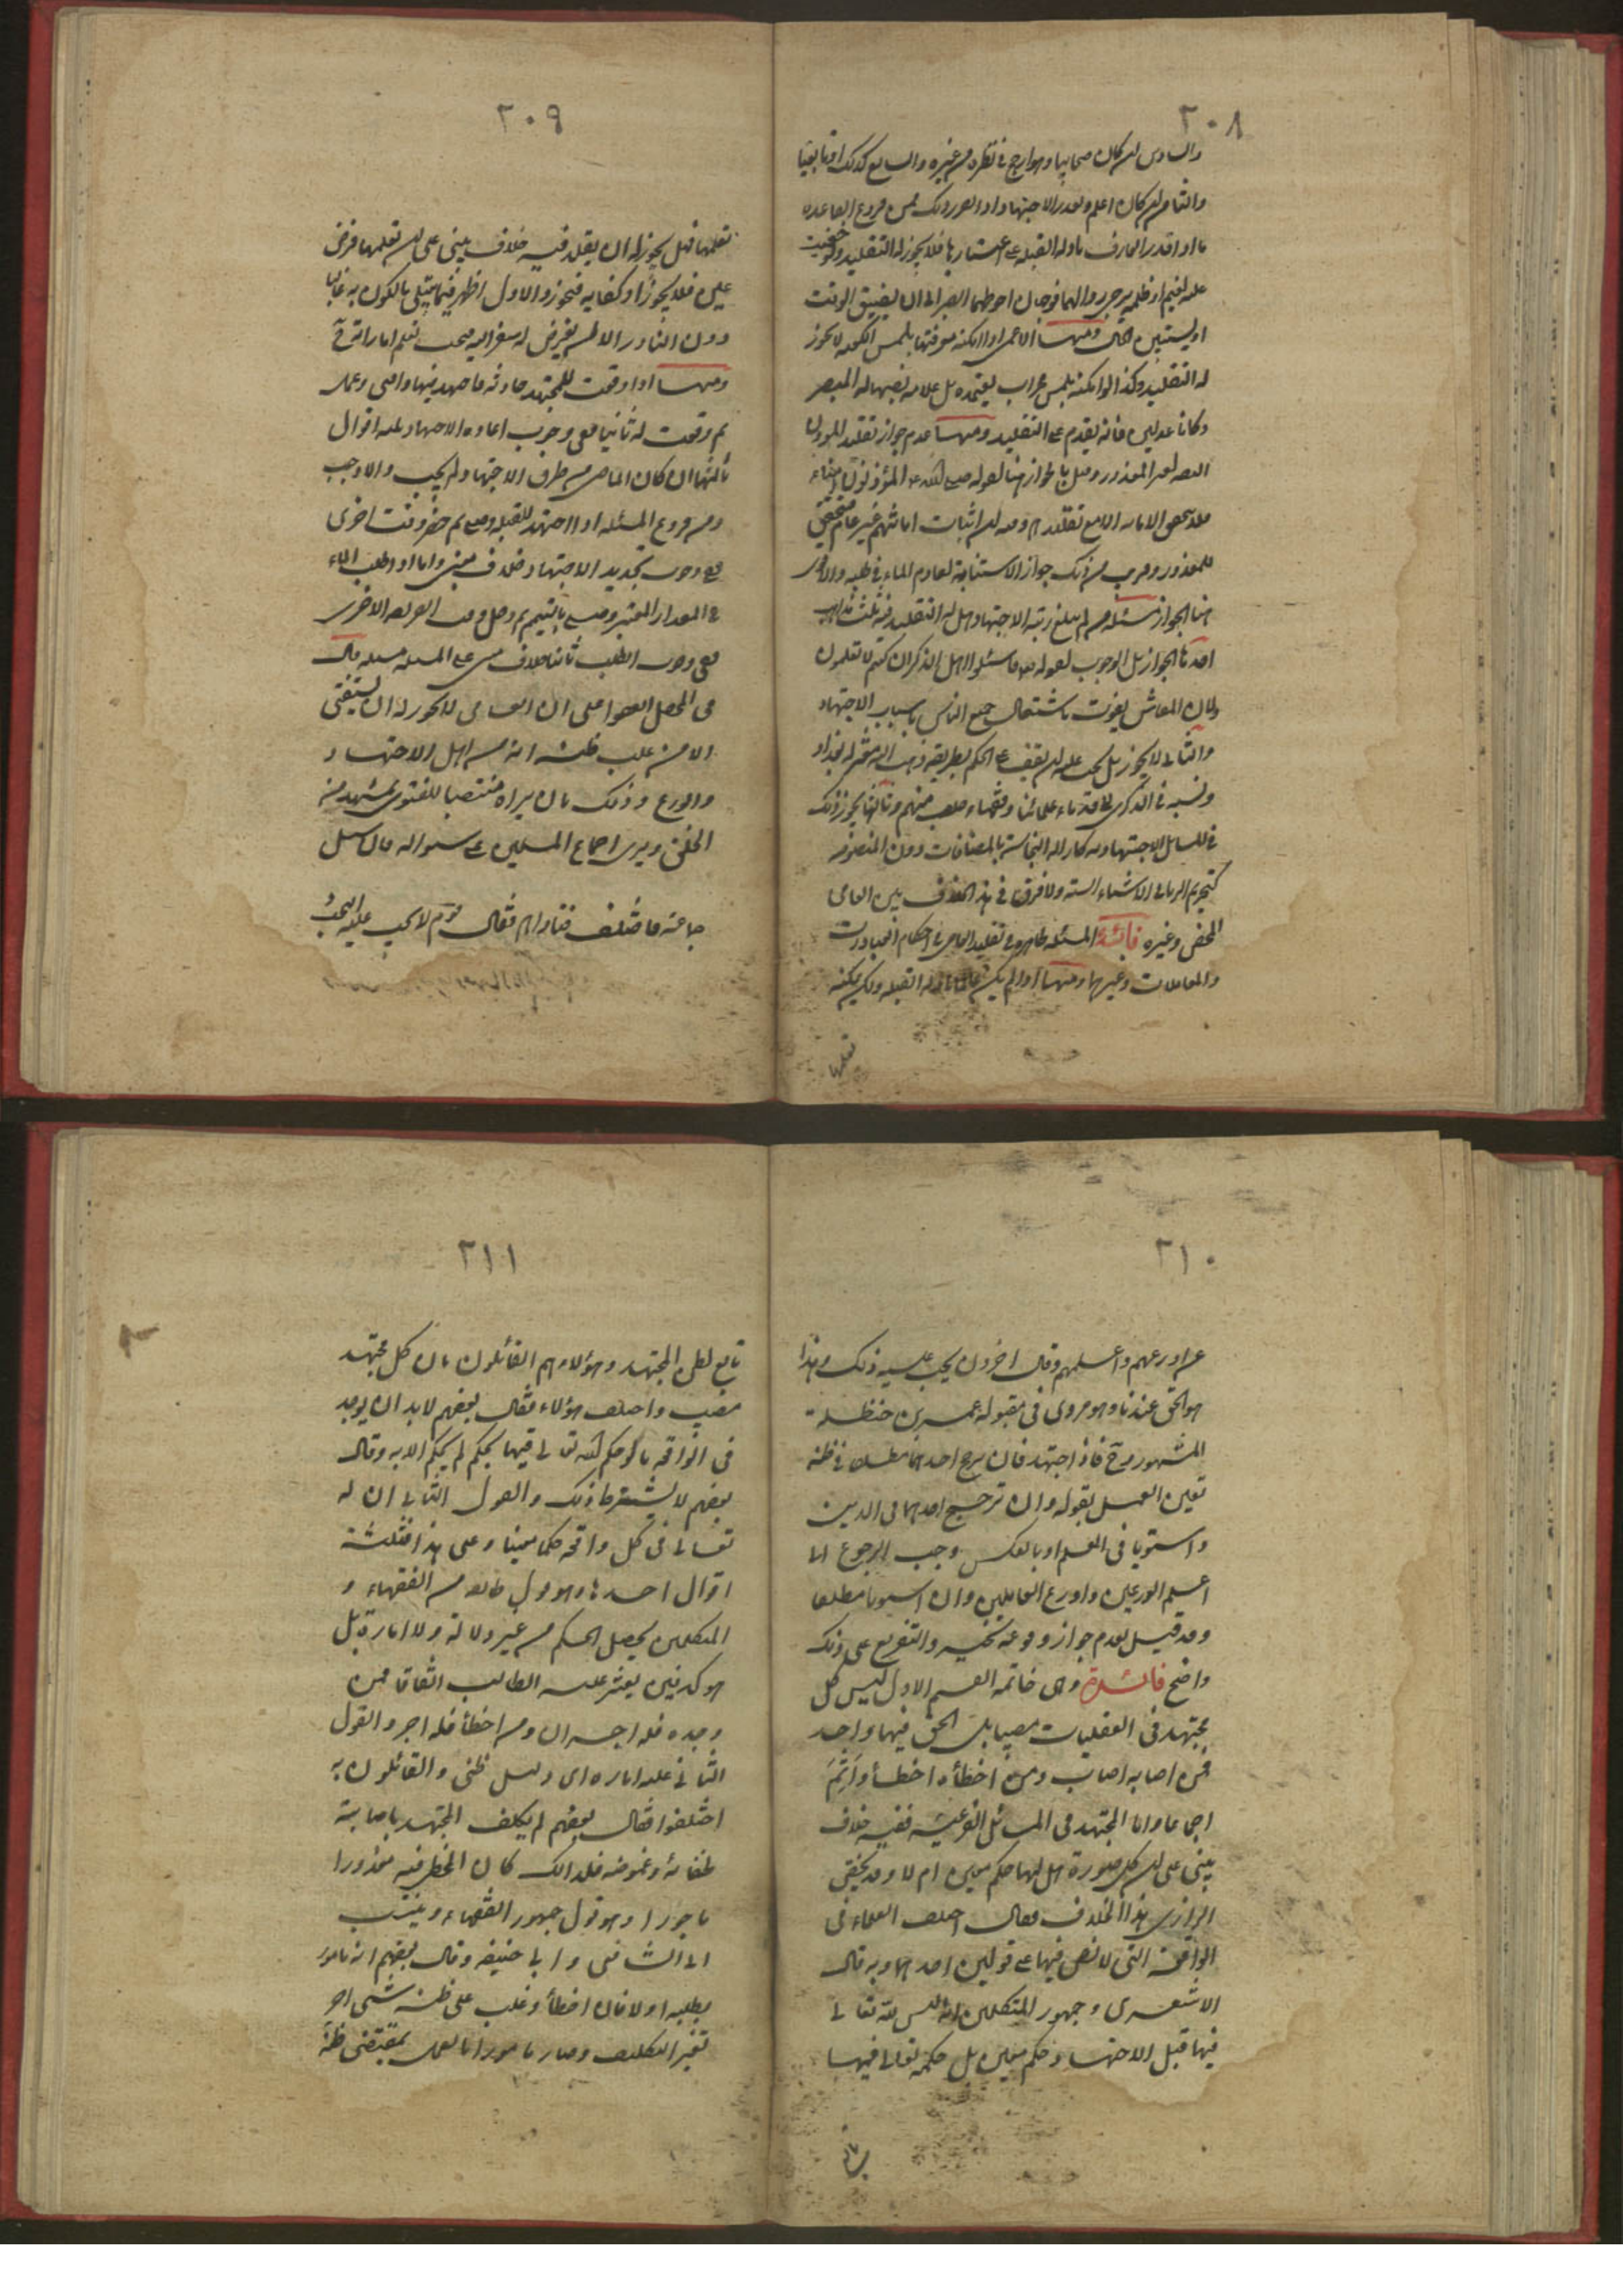 ٢٠٨
والسادس ان كان صحابيا وهو ارجح في نظره من غيره والسابع كذلك او تابعيا
والثامن ان كان اعلم وتعذر الاجتهاد اذا تقرر ذلك فمن فروع القاعدة
ما اذا قدر العارف بادلة القبلة على اعتبارها فلا يجوز له التقليد ولو خفيت
عليه لغيم او ظلمة
اوالها فوجهان احوطهما الصبر الى ان يضيق الوقت
او يستبين الحال ومنها الاعمى اذا امكنه معرفتها بلمس الكعبة لا يجوز
له التقليد وكذا لو امكنه بلمس محراب يعتمده بل علامة نصبها له المبصر
وكانا عدلين فانه يقدم على التقليد ومنها عدم جواز تقليد المؤذن
لغير المعذور وقيل بالجواز هنا لقوله صلى الله عليه المؤذنون امناء
فلا تحصل الامانة الا مع تقليدهم وفيه ان اثبات امانتهم غير عام متحقق
للمعذور وقريب من ذلك جواز الاستنابة لعادم الماء في طلبه والاقوى
هنا الجواز مسئلة من لم يبلغ رتبة الاجتهاد هل له التقليد فيه ثلث مذاهب
احدها الجواز بل الوجوب لقوله تعالى فاسئلوا اهل الذكر ان كنتم لا تعلمون
ولان المعاش يفوت باشتغال جميع الناس باسباب الاجتهاد
والثاني لا يجوز بل يجب عليه ان يقف على الحكم بطريقه ذهب اليه معتزلة بغداد
ونسبه في الذكرى الى قدماء علمائنا وفقهاء حلب منهم وثالثها يجوز ذلك
في المسائل الاجتهادية كازالة النجاسة بالمضافات دون المنصوصة
كتحريم الربا في الاشياء الستة ولا فرق في هذا الخلاف بين العامي
المحض وغيره فائدة المسئلة ظاهرة في تقليد العامي في احكام العبادات
والمعاملات وغيرها ومنها اذا لم يكن عالما بادلة القبلة ولكن يمكنه
تعلمها
٢٠٩
تعلمها فهل يجوز له ان يقلد فيه خلاف مبني على ان تعلمها فرض
عين فلا يجوز او كفاية فيجوز والاول اظهر فيما يبتلى بالكون به غالبا
دون النادر الا ان يفرض له سفر اليه فيجب تعلم اماراته ح
ومنها اذا وقعت للمجتهد حادثة فاجتهد فيها وافتى وعمل
ثم وقعت له ثانيا ففي وجوب اعادة الاجتهاد ثلثة اقوال
ثالثها ان كان الماضي من طرق الاجتهاد لم يجب والا وجب
ومن فروع المسئلة اذا اجتهد للقبلة وصلى ثم حضر وقت اخرى
ففي وجوب تجديد الاجتهاد خلاف مبني واما اذا طلب الماء
في المقدار المعتبر وصلى بالتيمم ثم دخل وقت الفريضة الاخرى
ففي وجوب الطلب ثانيا خلاف مبني على المسئلة مسئلة قال
في المحصل اتفقوا على ان العامي لا يجوز له ان يستفتي
الا من غلب على ظنه انه من اهل الاجتهاد
والورع وذلك بان يراه منتصبا للفتوى بمشهد من
الخلق ويرى اجماع المسلمين على سؤاله فان سئل
جماعة فاختلف فتاواهم فقال قوم لا يجب عليه البحث
٢١٠
عن اورعهم واعلمهم وقال اخرون يجب عليه ذلك وهذا
هو الحق عندنا وهو مروي في مقبولة عمر بن حنظلة
المشهورة وح فاذا اجتهد فان ترجح احدهما مطلقا في ظنه
تعين العمل بقوله وان ترجح احدهما في الدين
واستويا في العلم او بالعكس وجب الرجوع الى
اعلم الورعين واورع العالمين وان استويا مطلقا
وقد قيل بعدم جواز وقوعه تخير والتفريع على ذلك
واضح فائدة وهي خاتمة القسم الاول ليس كل
مجتهد في العقليات مصيبا بل الحق فيها واحد
فمن اصابه اصاب ومن اخطأه اخطأ وأثم
اجماعا واما المجتهد في المسائل الفرعية ففيه خلاف
مبني على ان كل صورة هل لها حكم معين ام لا وقد لخص
الرازي هذا الخلاف فقال اختلف العلماء في
الواقعة التي لا نص فيها على قولين احدهما وبه قال
الاشعري وجمهور المتكلمين انه ليس لله تعالى
فيها قبل الاجتهاد حكم معين بل حكمه تعالى فيها
تابع
٢١١
تابع لظن المجتهد وهؤلاء هم القائلون بان كل مجتهد
مصيب واختلف هؤلاء فقال بعضهم لابد ان يوجد
في الواقعة ما لو حكم الله تعالى فيها بحكم لم يحكم الا به وقال
بعضهم لا يشترط ذلك والقول الثاني ان له
تعالى في كل واقعة حكما معينا وعلى هذا فثلثة
اقوال احدها وهو قول طائفة من الفقهاء و
المتكلمين يحصل الحكم من غير دلالة ولا امارة بل
هو كدفين يعثر عليه الطالب اتفاقا فمن
وجده فله اجران ومن اخطأ فله اجر والقول
الثاني عليه امارة اى دليل ظني والقائلون به
اختلفوا فقال بعضهم لم يكلف المجتهد باصابته
لخفائه وغموضه فلذلك كان المخطئ فيه معذورا
ماجورا وهو قول جمهور الفقهاء وينسب
الى الشافعي وابي حنيفة وقال بعضهم انه مامور
بطلبه اولا فان اخطأ وغلب على ظنه شئ اخر
تغير التكليف وصار مامورا بالعمل بمقتضى ظنه